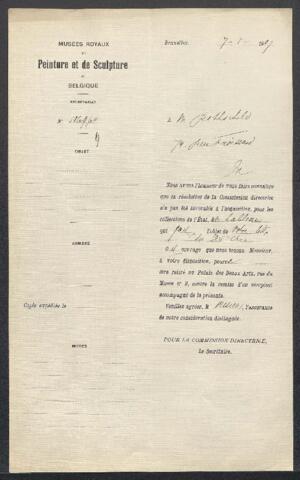 MUSÉES ROYAUX
DE
Peinture et de Sculpture
DE
BELGIQUE
SECRÉTARIAT
N°
OBJET
ANNEXE
Copie expédiée le
NOTES
Bruxelles, 7
à M Rothschild
M
Nous avons l'honneur de vous faire connaître
que la résolution de la Commission directrice
n'a pas été favorable à l'acquisition, pour les
collections de l'État, de
qui fait l'objet de votre
du
Cet ouvrage que nous tenons Monsieur,
à votre disposition, pourra
être retiré au Palais des Beaux Arts, rue du
Musée n° 9, contre la remise d'un récépissé
accompagné de la présente.
Veuillez agréer, M l'assurance
de notre considération distinguée.
POUR LA COMMISSION DIRECTRICE,
Le Secrétaire,